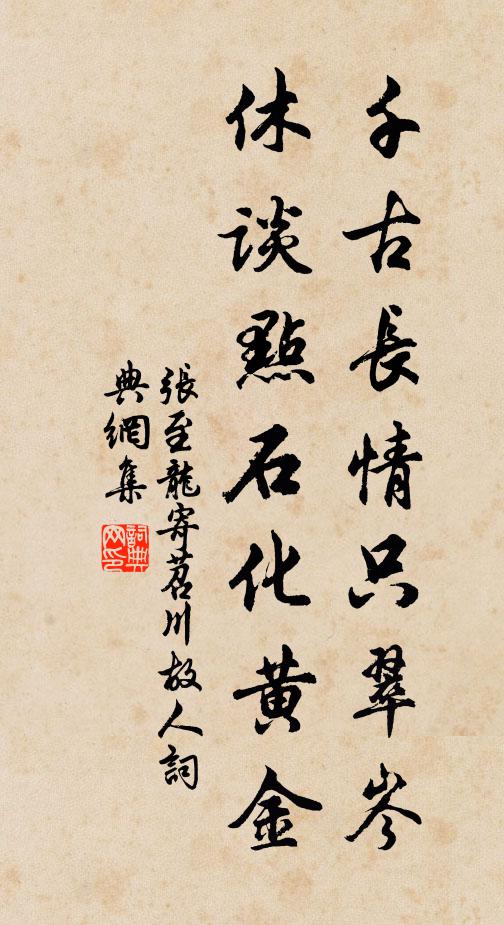 千古長情只翠岑
休談點石化黃金
張至龍寄苕川故人詞
典網集
詞典
网印